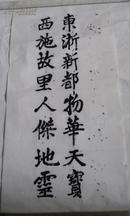 東浙新都物華天寶
西施故里人傑地靈